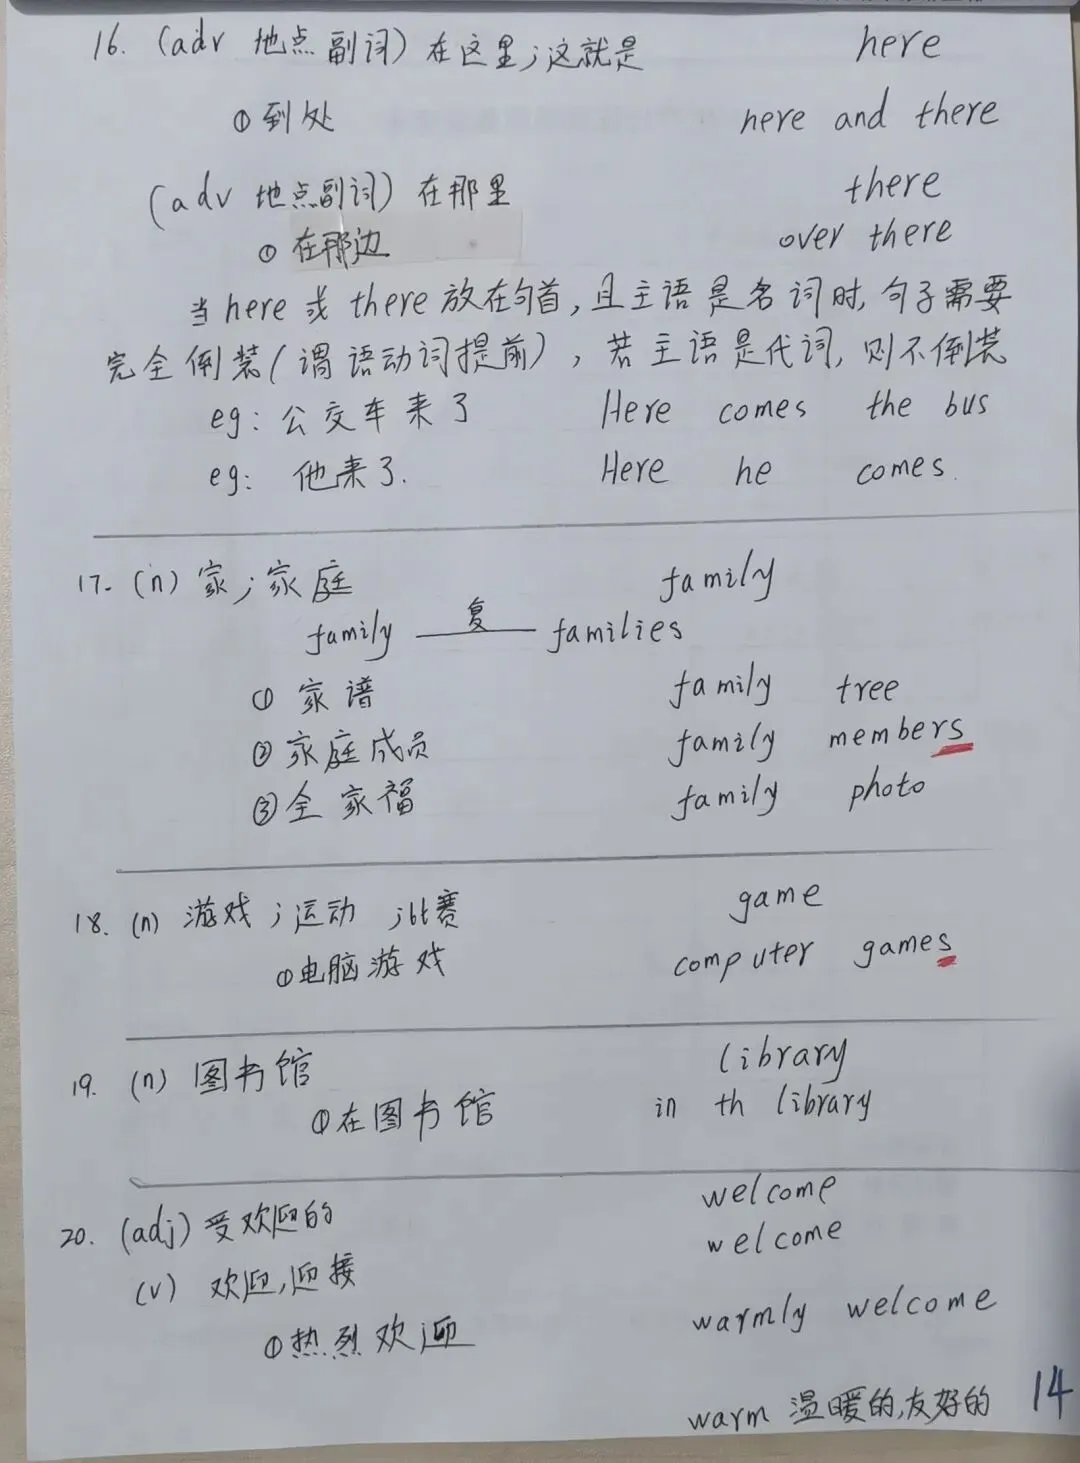 16. (adv 地点副词) 在这里;这就是 here
① 到处 here and there
(adv 地点副词) 在那里 there
① 在那边 over there
当here或there放在句首,且主语是名词时,句子需要
完全倒装(谓语动词提前),若主语是代词,则不倒装
eg: 公交车来了 Here comes the bus
eg: 他来了. Here he comes.
17. (n) 家;家庭 family
family 复 families
① 家谱 family tree
② 家庭成员 family members
③ 全家福 family photo
18. (n) 游戏;运动;比赛 game
① 电脑游戏 computer games
19. (n) 图书馆 library
① 在图书馆 in th library
20. (adj) 受欢迎的 welcome
(v) 欢迎,迎接 welcome
① 热烈欢迎 warmly welcome
warm 温暖的,友好的 14